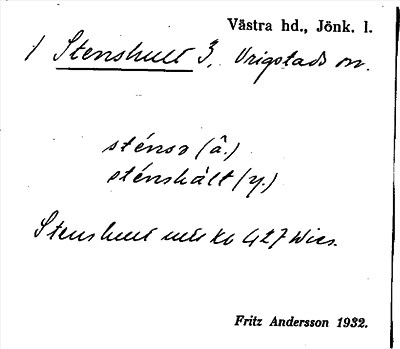 Västra hd., Jönk. l.
/ Stenshult 3, Vrigstads sn.
sténsa (â.)
sténshàlt (y.)
Stenshult 427 Wies.
Fritz Andersson 1932.